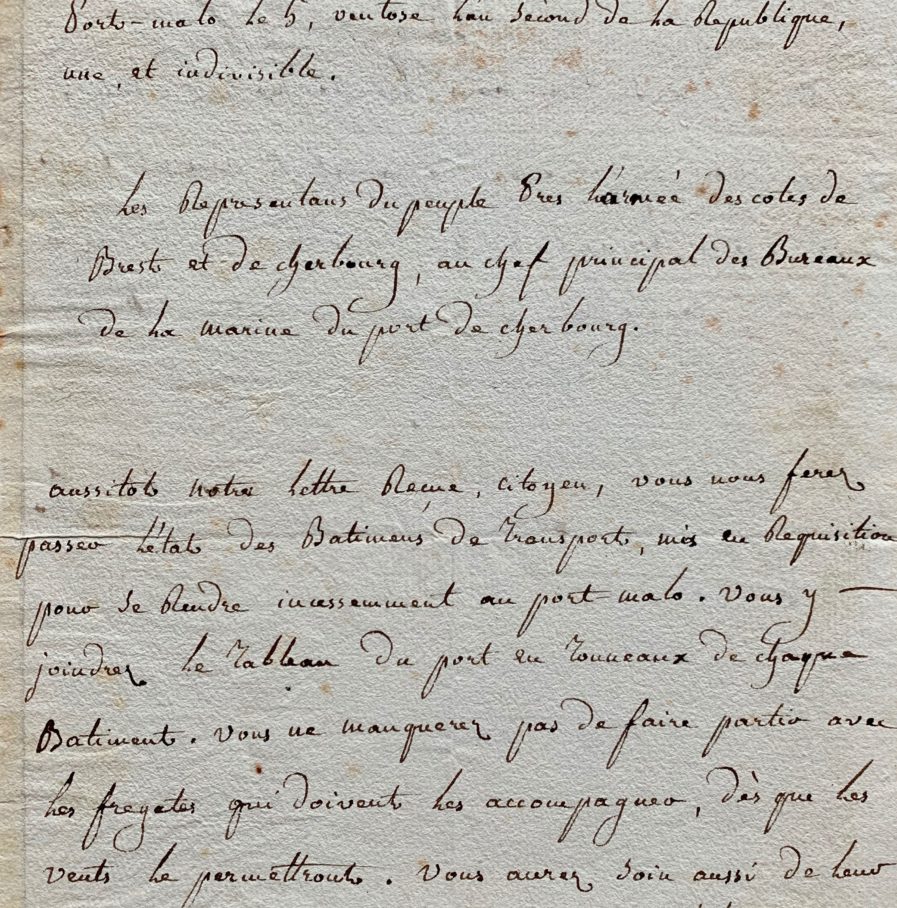 Port-malo le 5, ventose l'an second de la Republique,
une, et indivisible.
Les Representans du peuple Pres l'armée des cotes de
Brest et de cherbourg, au chef principal des Bureaux
de la marine du port de cherbourg.
aussitot notre lettre Reçue, citoyen, vous nous ferez
passer l'état des Batimens de Transport, mis en Requisition
pour se Rendre incessemment au port malo. Vous y —
joindrez le Tableau du port en Tonneaux de chaque
Batiment. Vous ne manquerez pas de faire partir avec
les fregates qui doivent les accompagner, dès que les
vents le permettront. Vous aurez soin aussi de leur